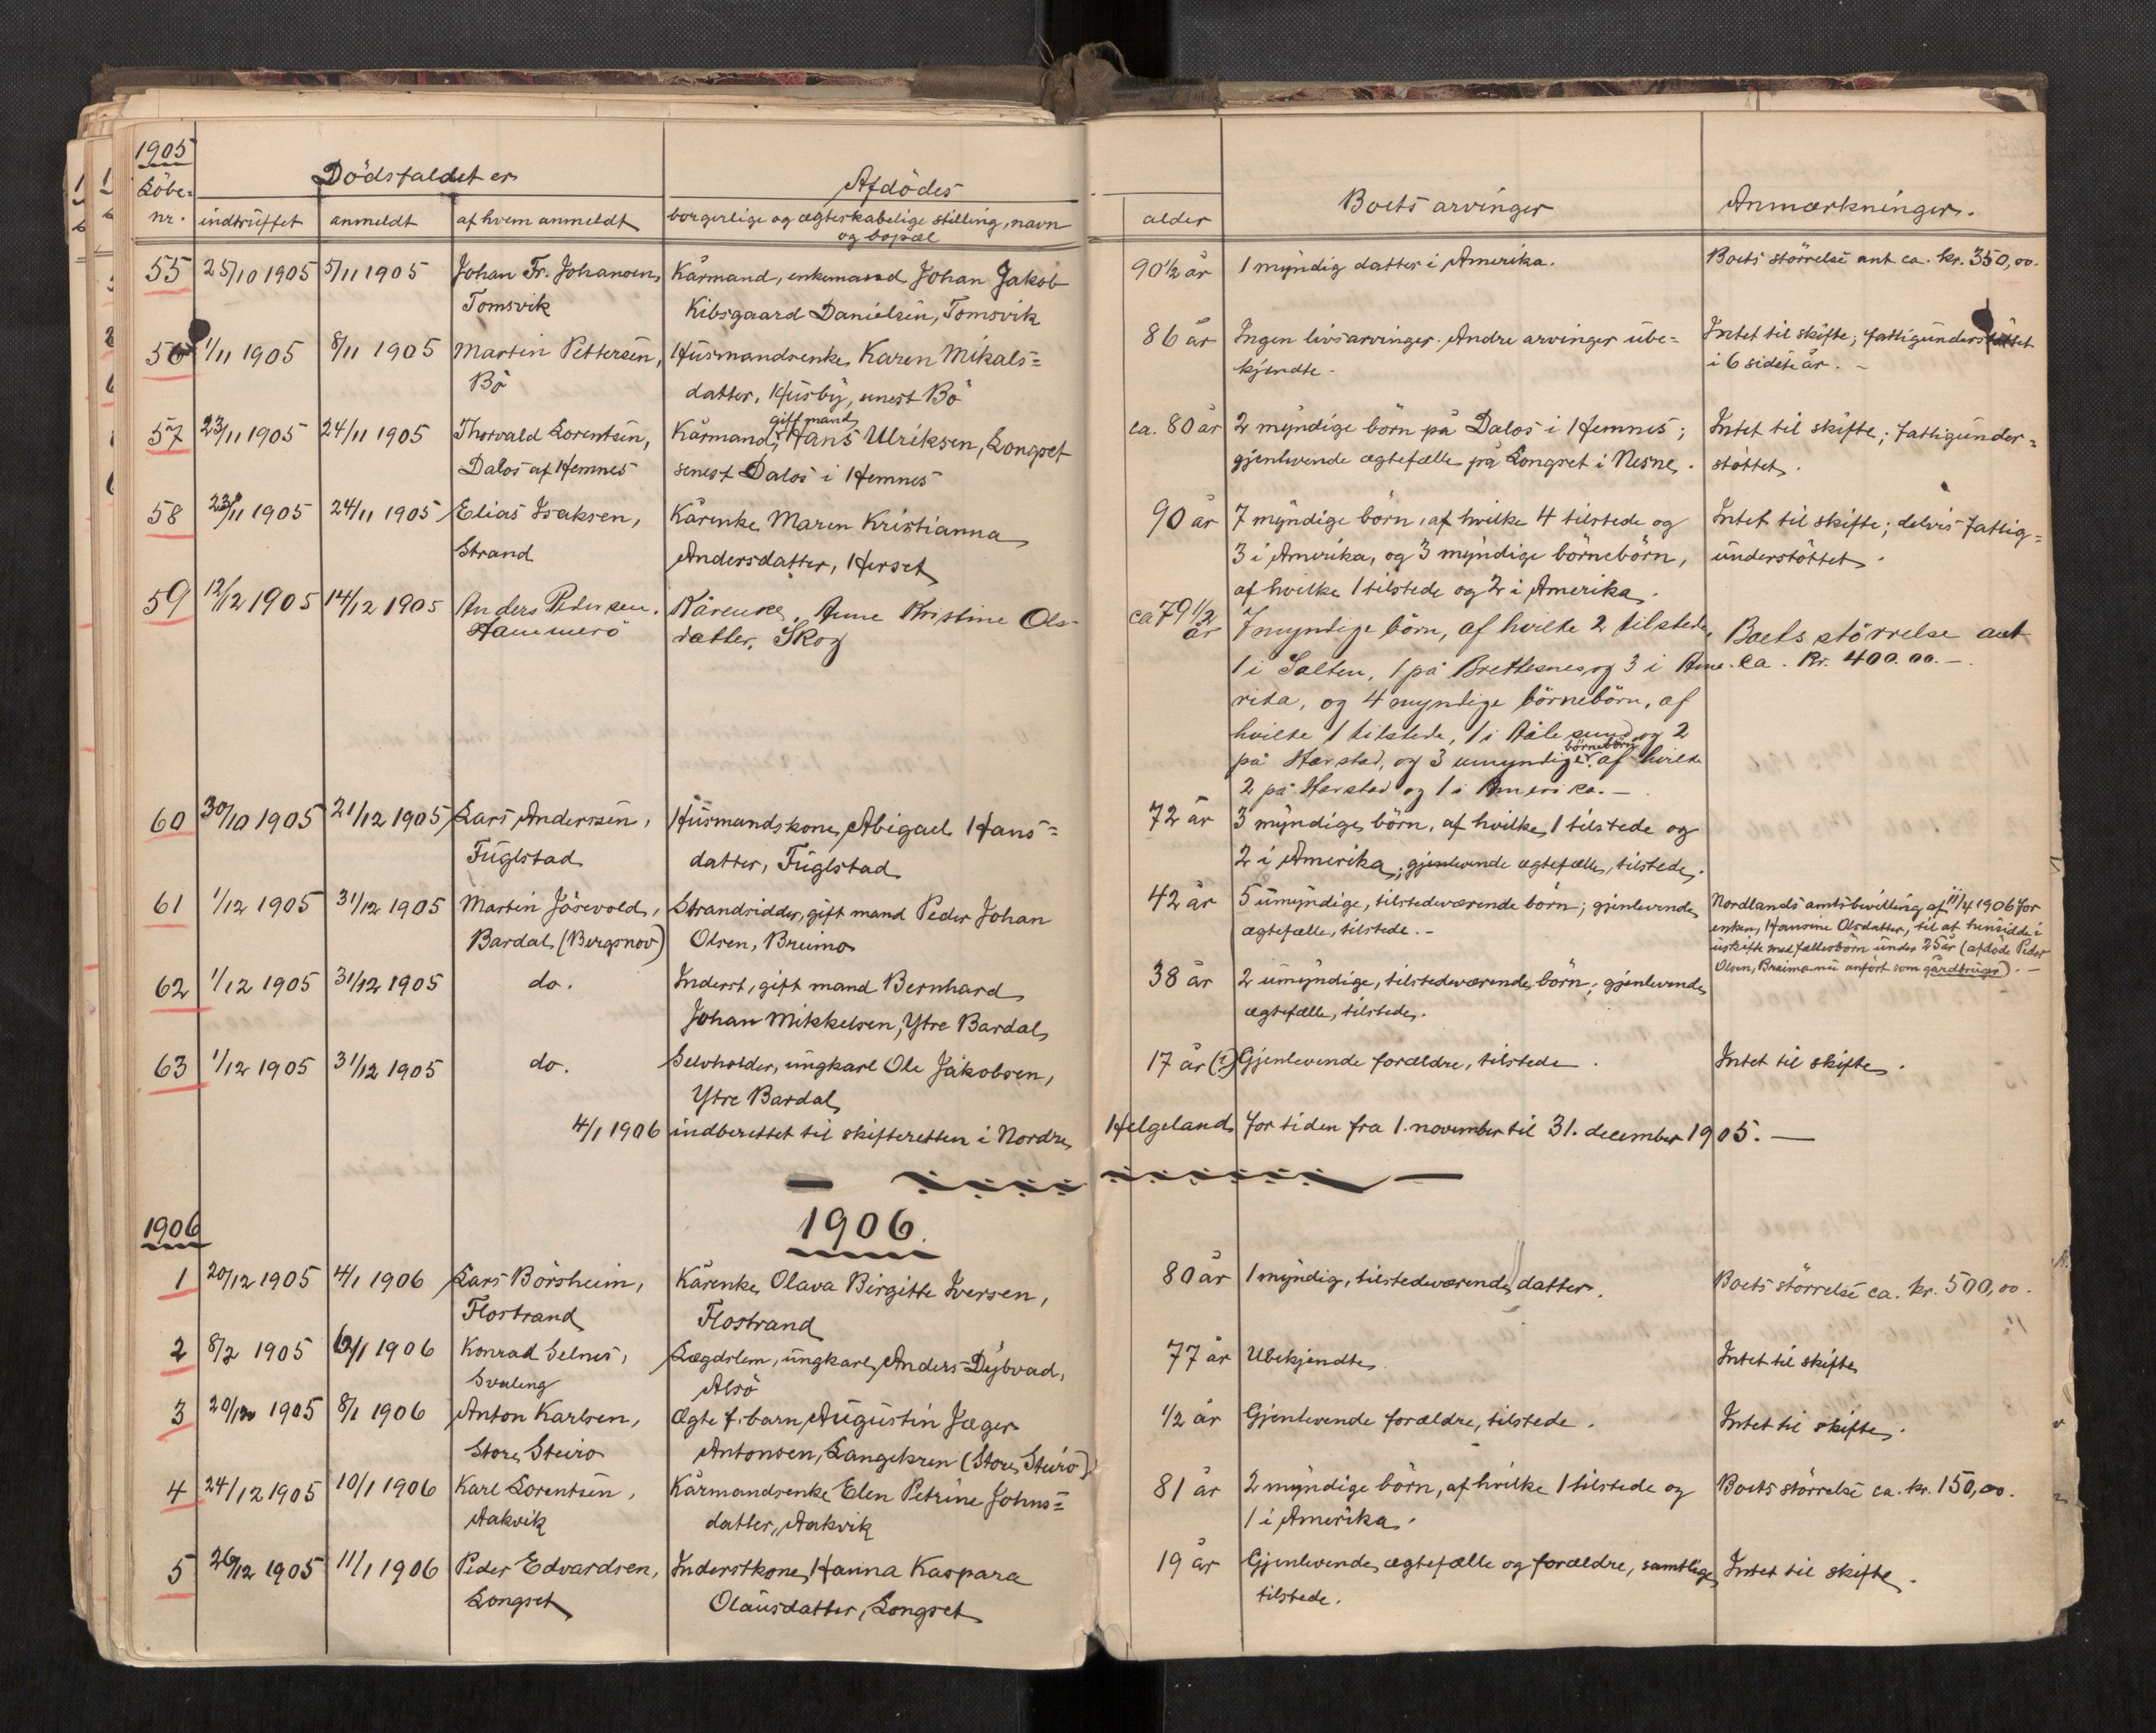 1905
Löbe-
nr.
Dödsfaldet er
indtruffet
anmeldt
af hvem anmeldt
Afdödes
borgerlige og ægteskabelige stilling, navn
og bopæl
alder
Boets arvinger
Anmærkninger.
55 25/10 1905 5/11 1905 Johan Fr. Johansen, Kårmand, enkemand Johan Jakob 90 1/2 år 1 myndig datter i Amerika. Boets størrelse ant ca. kr. 350,00.
Tomsvik Kibsgaard Danielsen, Tomsvik
56 1/11 1905 8/11 1905 Martin Pettersen, Husmandsenke Karen Mikals= 86 år Ingen livsarvinger. Andre arvinger ube= Intet til skifte; fattigunderstöttet
Bö datter, Husby, senest Bö kjendte. i 6 sidste år. -
57 23/11 1905 24/11 1905 Thorvald Lorentsen, Kårmand, gift mand Hans Ulriksen, Longset ca. 80 år 2 myndige börn på Dalos i Hemnes; Intet til skifte; fattigunder=
Dalos af Hemnes senest Dalos i Hemnes gjenlevende ægtefælle på Longset i Nesne. stöttet.
58 23/11 1905 24/11 1905 Elias Isaksen, Kårenke Maren Kristianna 90 år 7 myndige börn, af hvilke 4 tilstede og Intet til skifte; delvis fattig=
Strand Andersdatter, Herset 3 i Amerika, og 3 myndige börnebörn, understöttet.
af hvilke 1 tilstede og 2 i Amerika.
59 12/12 1905 14/12 1905 Anders Pedersen. Kårenke, Anne Kristine Ols- ca 79 1/2 år 7 myndige börn, af hvilke 2 tilstede, Boets störrelse ant
Hammerö datter, Skog 1 i Salten, 1 på Brettesnes og 3 i Ame- ca. Kr. 400.00.-
rika, og 4 myndige börnebörn, af
hvilke 1 tilstede, 1 i Ålesund og 2
på Harstad, og 3 umyndige börnebörn af hvilke
2 på Harstad og 1 i Amerika. -
60 30/10 1905 21/12 1905 Lars Anderssen, Husmandskone Abigael Hans= 72 år 3 myndige börn, af hvilke 1 tilstede og
Fuglstad datter, Fuglstad 2 i Amerika; gjenlevende ægtefælle, tilstede.
61 1/12 1905 31/12 1905 Martin Jösevold, Strandsidder, gift mand Peder Johan 42 år 5 umyndige, tilstedeværende börn; gjenlevende Nordlands amts bevilling af 11/4 1906 for
Bardal (Bergsnov) Olsen, Breimo ægtefælle, tilstede. - enken, Hansine Olsdatter, til at hensidde i
uskifte med fællesbörn under 25 år (afdöde Peder
Olsen, Breimo nu anført som gårdbruger). -
62 1/12 1905 31/12 1905 do. Inderst, gift mand Bernhard 38 år 2 umyndige, tilstedeværende börn; gjenlevende
Johan Mikkelsen, Ytre Bardal ægtefælle, tilstede.
63 1/12 1905 31/12 1905 do. Selvholder, ungkarl Ole Jakobsen, 17 år (?) Gjenlevende forældre, tilstede. Intet til skifte.
Ytre Bardal
4/1 1906 indberettet til skifteretten i Nordre Helgeland for tiden fra 1. november til 31. december 1905. -
1906
1906.
1 20/12 1905 4/1 1906 Lars Börsheim, Kårenke Olava Birgitte Iversen, 80 år 1 myndig, tilstedeværende datter. Boets störrelse ca. kr. 500,00.
Flostrand Flostrand
2 8/2 1905 6/1 1906 Konrad Selnes, Lægdslem, ungkarl Anders Dybvad, 77 år Ubekjendte Intet til skifte
Svaleng Alsö
3 20/12 1905 8/1 1906 Anton Karlsen, Ægte f. barn Augustin Jæger 1/2 år Gjenlevende forældre, tilstede. Intet til skifte.
Store Steiro Antonsen, Langekren (Store Steiro)
4 24/12 1905 10/1 1906 Karl Lorentsen, Kårmandsenke Elen Petrine Johns= 81 år 2 myndige börn, af hvilke 1 tilstede og Boets störrelse ca. kr. 150,00.
Aakvik datter, Aakvik 1 i Amerika.
5 26/12 1905 11/1 1906 Peder Edvardsen, Inderstkone Hanna Kaspara 19 år Gjenlevende ægtefælle og forældre, samtlige Intet til skifte.
Longset Olausdatter, Longset tilstede.